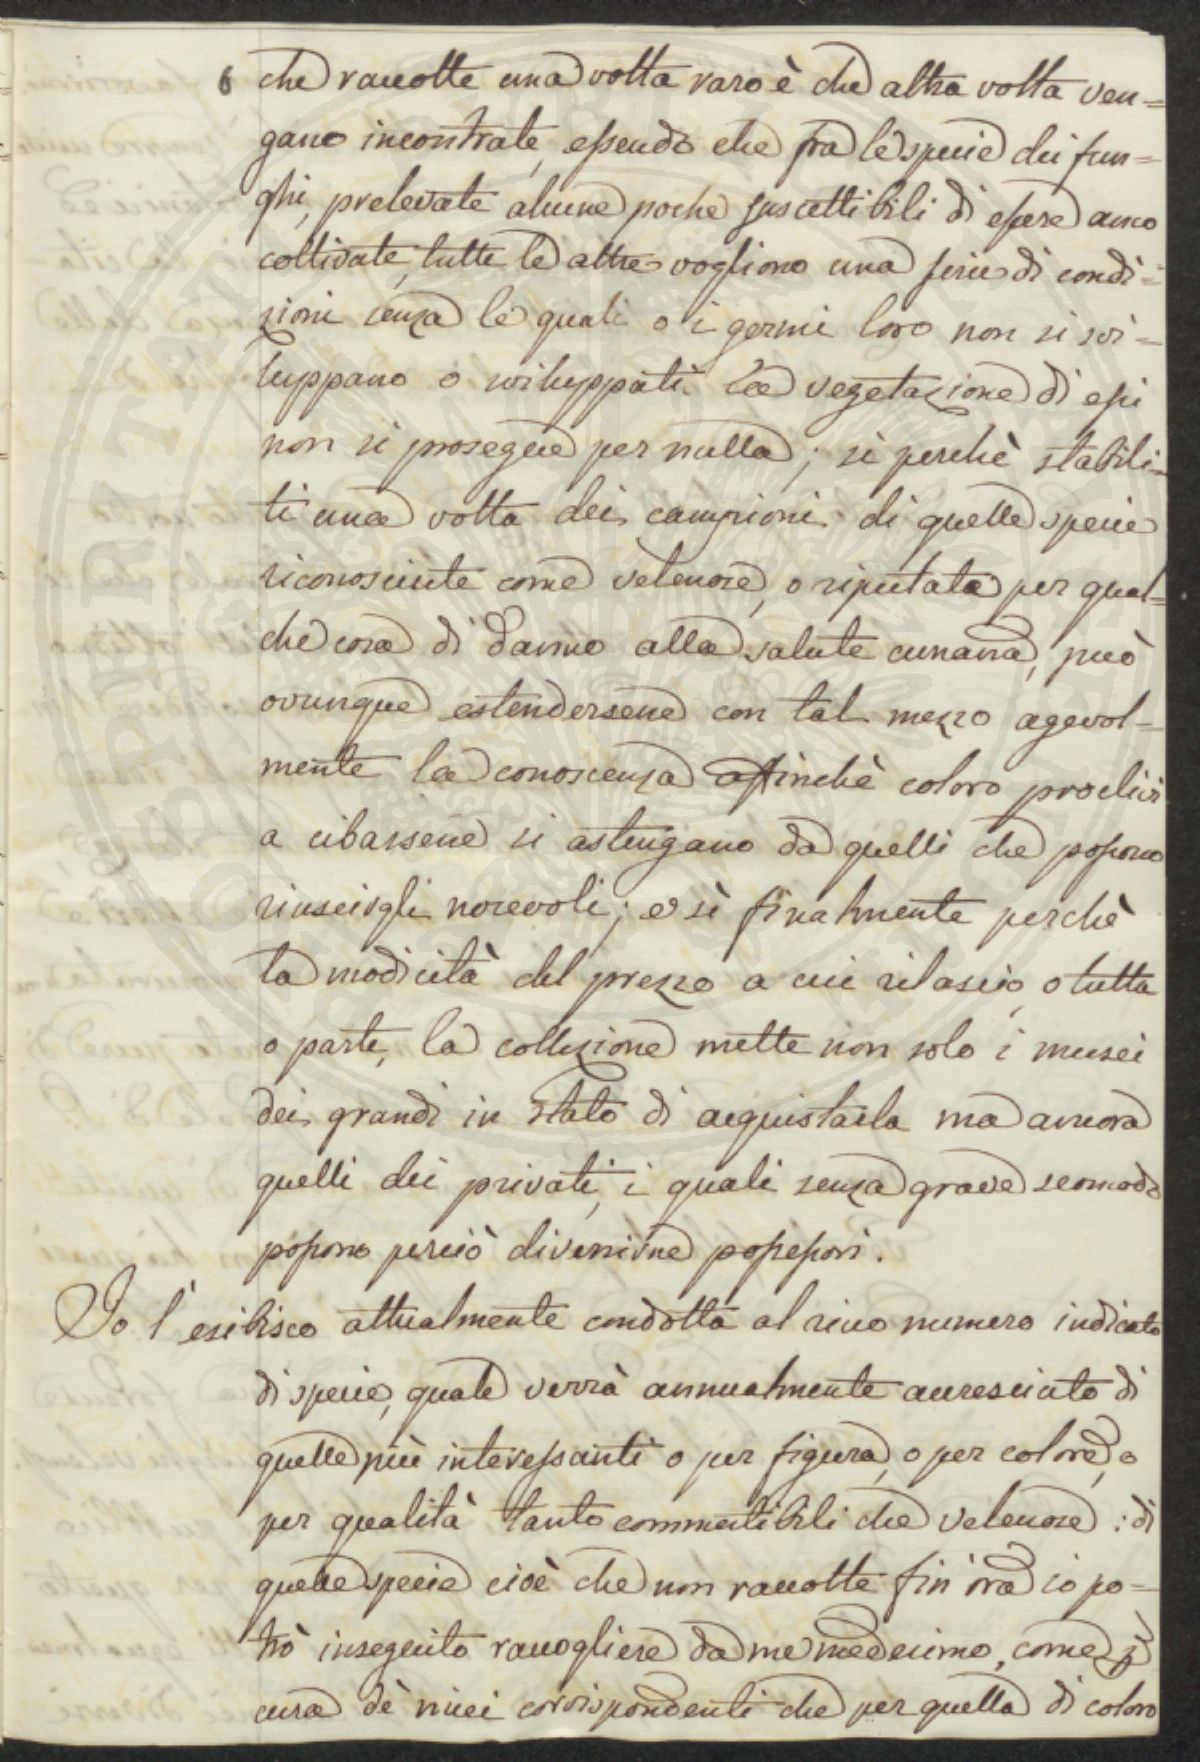 6 che raccolte una volta raro è che altra volta ven=
gano incontrate, essendo che fra le specie dei fun=
ghi, prelevate alcune poche suscettibili di essere anco
coltivate, tutte le altre vogliono una serie di condi=
zioni senza le quali o i germi loro non si svi=
luppano o sviluppati la vegetazione di essi
non si prosegue per nulla; sì perchè stabili=
ti una volta dei campioni di quelle specie
riconosciute come velenose, o riputata per qual=
che cosa di danno alla salute umana, può
ovunque estendersene con tal mezzo agevol=
mente la conoscenza affinchè coloro proclivi
a cibarsene si astengano da quelli che possono
riuscirgli nocevoli; e sì finalmente perchè
la modicità del prezzo a cui rilascio, o tutta
o parte, la collezione mette non solo i musei
dei grandi in stato di acquistarla ma ancora
quelli dei privati, i quali senza grave scomodo
possono perciò divenirne possessori.
Io l'esibisco attualmente condotta al sino numero indicato
di specie, quale verrà annualmente accresciato di
quelle più interessanti o per figura, o per colore, o
per qualità tanto commestibili che velenose: di
quelle specie cioè che non raccolte fin'ora io po=
trò inseguito raccogliere da me medesimo, come p
cura de' miei corrispondenti che per quella di coloro